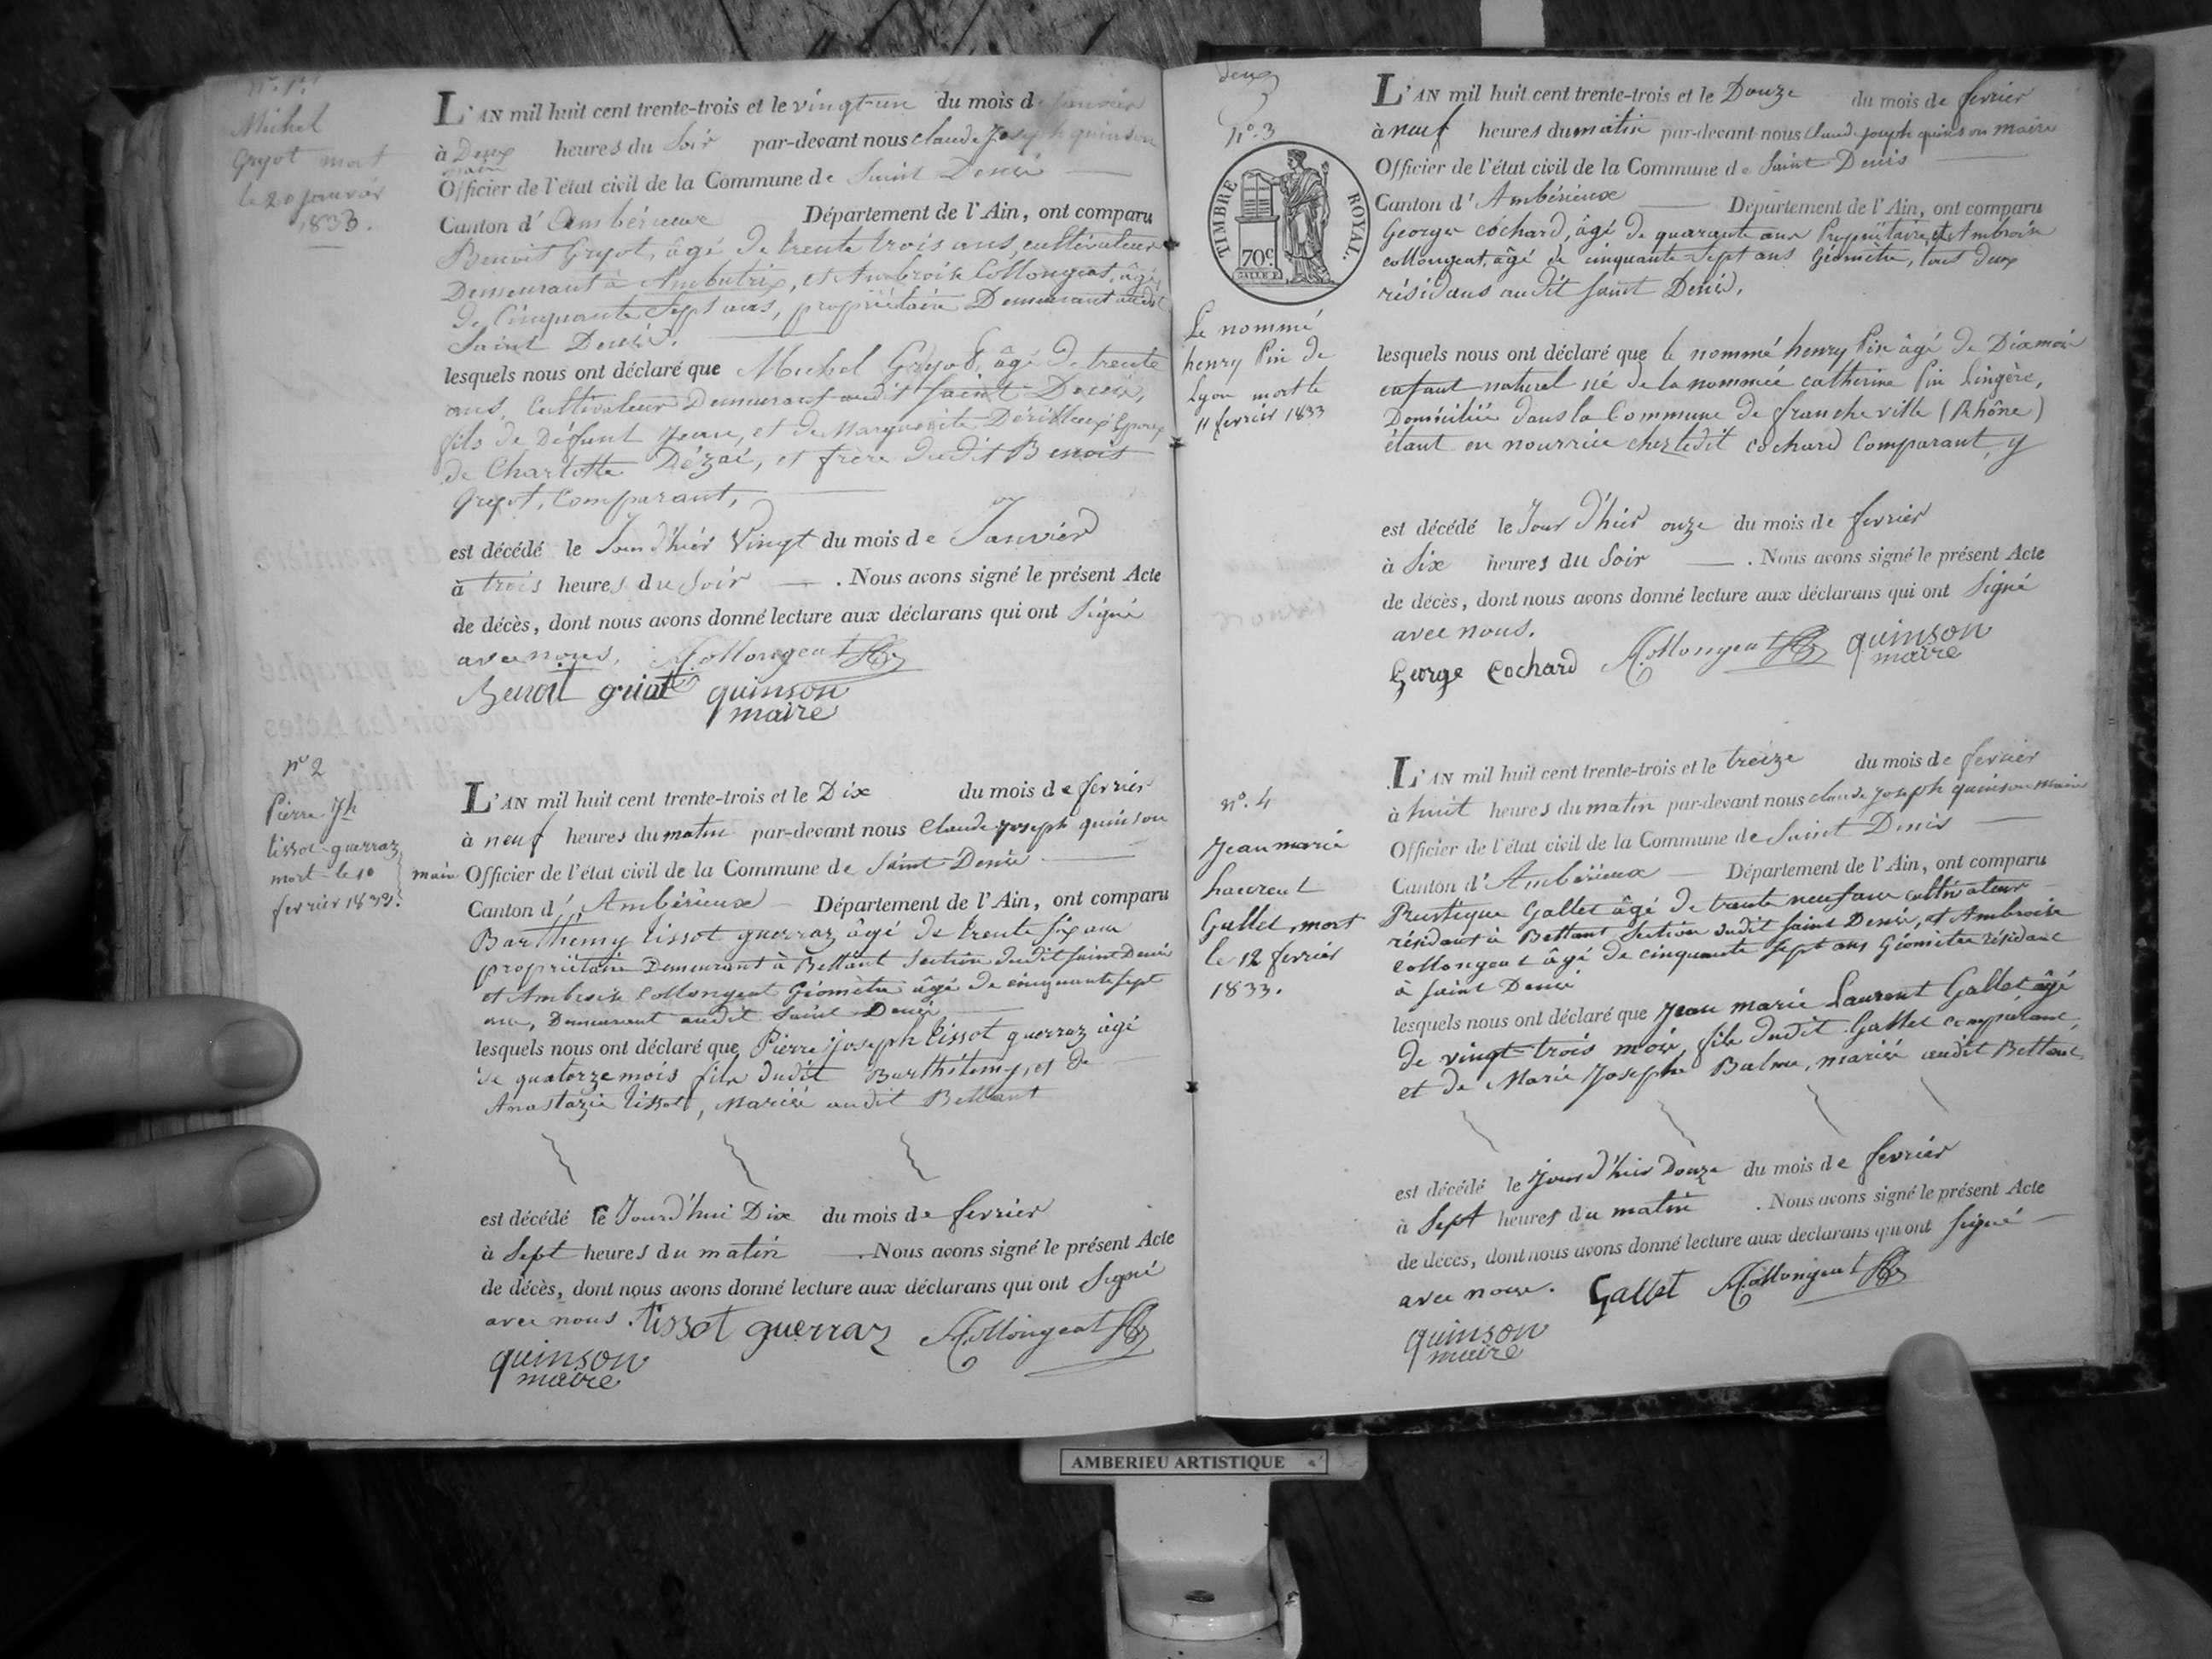 n°. 1er
Michel
Gryot mort
le 20 janvier
1833.
L'AN mil huit cent trente-trois et le vingt-un du mois de janvier
à Deux heures du Soir par-devant nous claude Joseph quinson
maire
Officier de l'état civil de la Commune de Saint Denis
Canton d'Ambérieux Département de l'Ain, ont comparu
Benoit Gryot, âgé de trente trois ans, cultivateur
Demeurant à Ambutrix, et Ambroise Collongeat, âgé
de Cinquante Sept ans, propriétaire Demeurant audit
Saint Denis.
lesquels nous ont déclaré que Michel Gryot, âgé de trente
ans, Cultivateur Demeurant audit Saint Denis,
fils de Défunt Jean, et de Marguerite Epoux
de Charlotte Dézai, et frère dudit Benoit
Gryot, Comparant,
est décédé le Jour d'hier Vingt du mois de Janvier
à trois heures du Soir . Nous avons signé le présent Acte
de décès, dont nous avons donné lecture aux déclarans qui ont Signé
avec nous, Collongeat
Benoit griat quinson
maire
n° 2
Pierre Jh
tissot guerraz
mort le 10
fevrier 1833.
L'AN mil huit cent trente-trois et le Dix du mois de fevrier
à neuf heures du matin par-devant nous Claude joseph quinson
maire Officier de l'état civil de la Commune de Saint Denis
Canton d'Ambérieux Département de l'Ain, ont comparu
Barthemy tissot guerraz âgé de trente six ans
propriétaire Demeurant à Bettant Section dudit saint Denis
et Ambroise Collongeat Géomètre âgé de cinquante sept
ans, Demeurant audit Saint Denis
lesquels nous ont déclaré que Pierre joseph tissot guerraz âgé
de quatorze mois fils dudit Barthélemy, et de
Anastazie tissot, Mariés audit Bettant
est décédé le Jourd'hui Dix du mois de fevrier
à Sept heures du matin . Nous avons signé le présent Acte
de décès, dont nous avons donné lecture aux déclarans qui ont Signé
avec nous. tissot guerraz Collongeat
quinson
maire
Deux
n°. 3
TIMBRE ROYAL.
70c
Le nommé
henry Pin de
Lyon mort le
11 fevrier 1833
L'AN mil huit cent trente-trois et le Douze du mois de fevrier
à neuf heures du matin par-devant nous Claude joseph quinson maire
Officier de l'état civil de la Commune de Saint Denis
Canton d'Ambérieux Département de l'Ain, ont comparu
George cochard, âgé de quarante ans Propriétaire, et Ambroise
collongeat, âgé de cinquante Sept ans Géomètre, tous deux
résidans audit Saint Denis.
lesquels nous ont déclaré que le nommé henry Pin âgé de Dix mois
enfant naturel né de la nommée catherine Pin lingère,
Domiciliée dans la Commune de francheville (Rhône)
étant en nourrice chez ledit cochard Comparant, y
est décédé le Jour d'hier onze du mois de fevrier
à Six heures du Soir . Nous avons signé le présent Acte
de décès, dont nous avons donné lecture aux déclarans qui ont Signé
avec nous. Collongeat quinson
George Cochard maire
n°. 4
Jean marie
Laurent
Gallet, mort
le 12 fevrier
1833.
L'AN mil huit cent trente-trois et le treize du mois de fevrier
à huit heures du matin par-devant nous claude joseph quinson maire
Officier de l'état civil de la Commune de Saint Denis
Canton d'Ambérieux Département de l'Ain, ont comparu
Rustique Gallet âgé de trente neuf ans cultivateur
résidant à Bettant Section dudit Saint Denis, et Ambroise
Collongeat âgé de cinquante Sept ans Géomètre résidant
à Saint Denis
lesquels nous ont déclaré que Jean marie Laurent Gallet âgé
de vingt-trois mois, fils dudit Gallet comparant,
et de Marie Josephe Balme, mariés audit Bettant
est décédé le Jour d'hier Douze du mois de fevrier
à Sept heures du matin . Nous avons signé le présent Acte
de décès, dont nous avons donné lecture aux déclarans qui ont Signé
avec nous. Gallet Collongeat
quinson
maire
AMBERIEU ARTISTIQUE